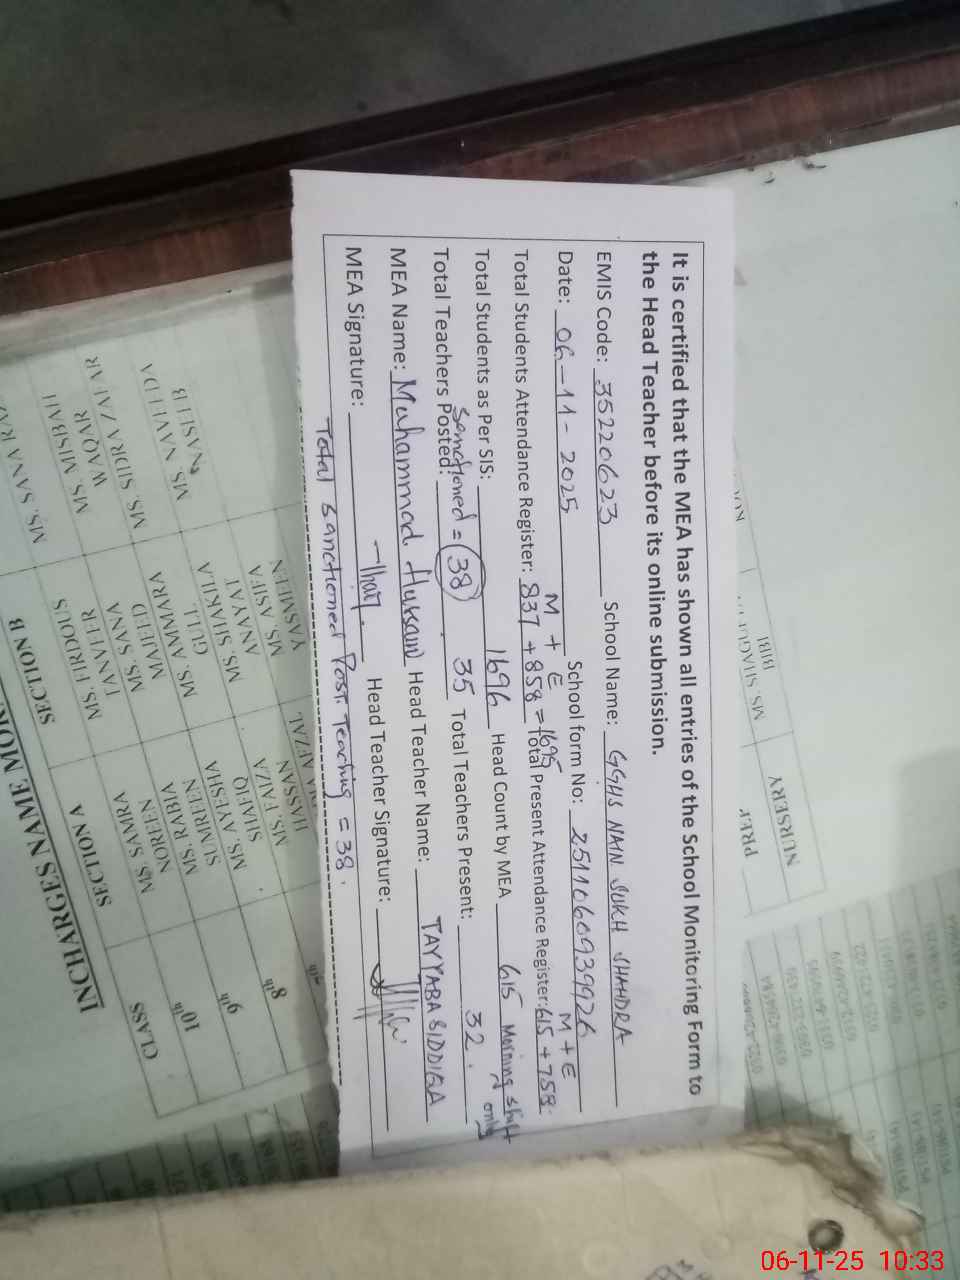 It is certified that the MEA has shown all entries of the School Monitoring Form to
the Head Teacher before its online submission.
EMIS Code: 35220623 School Name: GGHS NAIN SUKH SHAHDRA
Date: 06-11-2025 School form No: 2511060939926
M + E M + E
Total Students Attendance Register: 837 + 858 = 1695 Total Present Attendance Register: 615 + 758
Total Students as Per SIS: 1696 Head Count by MEA 615 Morning shift only
Sanctioned = 38
Total Teachers Posted: 35 Total Teachers Present: 32.
MEA Name: Muhammad Hussain Head Teacher Name: TAYYABA SIDDIQA
MEA Signature: Head Teacher Signature:
Total Sanctioned Post. Teaching = 38.
INCHARGES NAME MOR
CLASS SECTION A SECTION B
10th MS. SAMRA NOREEN MS. FIRDOUS MS. SANA RA
9th MS. RABIA SUMREEN MS. SANA MAJEED MS. MISBAH WAQAR
8th MS. AYESHA SHAFIQ MS. AMMARA GULL MS. SIDRA ZAFAR
MS. FAIZA HASSAN MS. SHAKILA ANAYAT MS. NAVEEDA
MS. ASIFA YASMEEN
AFZAL
PREP
NURSERY
BIBI
06-11-25 10:33